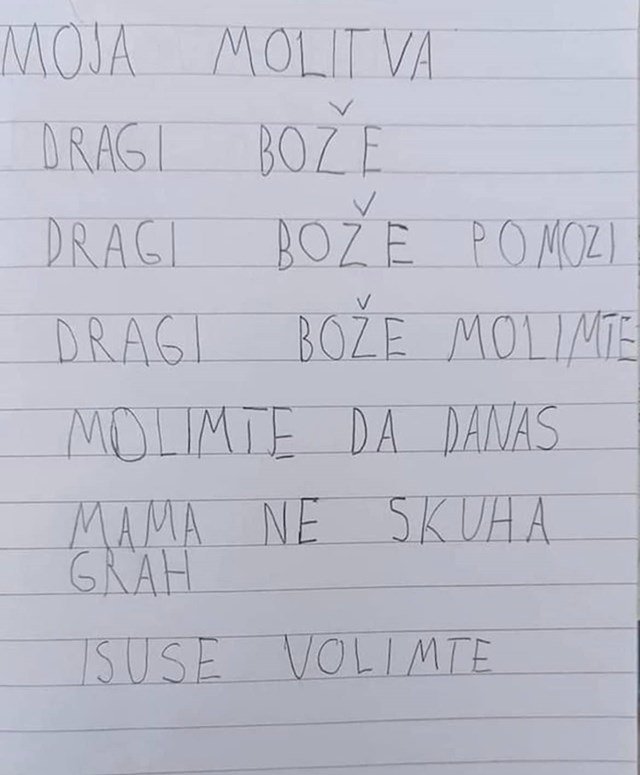 MOJA MOLITVA
DRAGI BOŽE
DRAGI BOŽE POMOZI
DRAGI BOŽE MOLIMTE
MOLIMTE DA DANAS
MAMA NE SKUHA
GRAH
ISUSE VOLIMTE